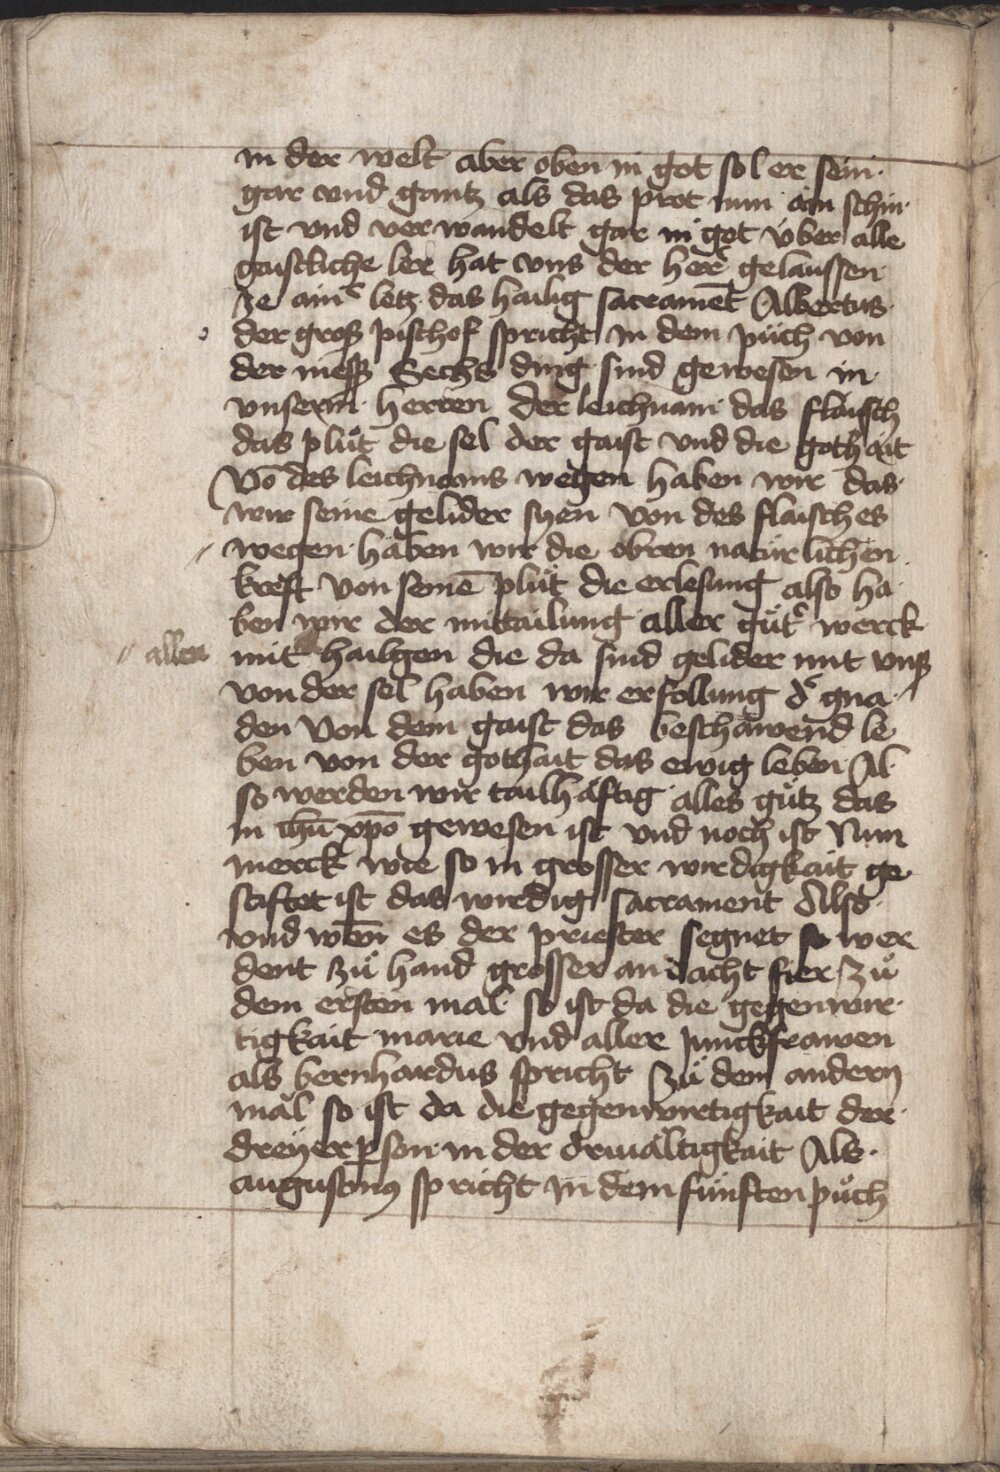 in der welt aber oben in got sol er sein
gar vnd gantz als das prot nun ain schin
ist vnd verwandelt gar in got v̈ber alle
gaistliche ler hat vns der herr gelaussen
ze ainer letz das hailig sacrament Albertus
der groß pischof spricht in dem pu̍ch von
der messz Sechs ding sind gewesen in
vnserm herren der leichnam das flaisch
das plůt die sel der gaist vnd die gothait
Võ des leichnams wegen haben wir das
wir seine gelider syen von des flaisches
wegen haben wir die obren natürlichen
kreft von seinē plůt die erlesung also ha
ben wir der mittailung aller gůtˀ werck
allen mit hailigen die da sind gelider mit vnß
von der sel haben wir erfollung dˀ gna
den Von dem gaist das beschawend le
ben von der gothait das ewig leben Al
so werden wir tailhäftig alles gůtz das
in ihū xp̄o gewesen ist vnd noch ist Nun
merck wie so in grosser wirdigkait ge
stiftet ist das wirdig sacrament Also
vnd weñ es der priester segnet so wer
dent zů hand grosser andacht fier zů
dem ersten mal so ist da die gegenwir
tigkait marie vnd aller junckfrawen
als bernhardus spricht zů dem andern
mäl so ist da die gegenwirtigkait der
dreÿer pson in der driuältigkait Als
augustinꝰ spricht in dem fünften půch